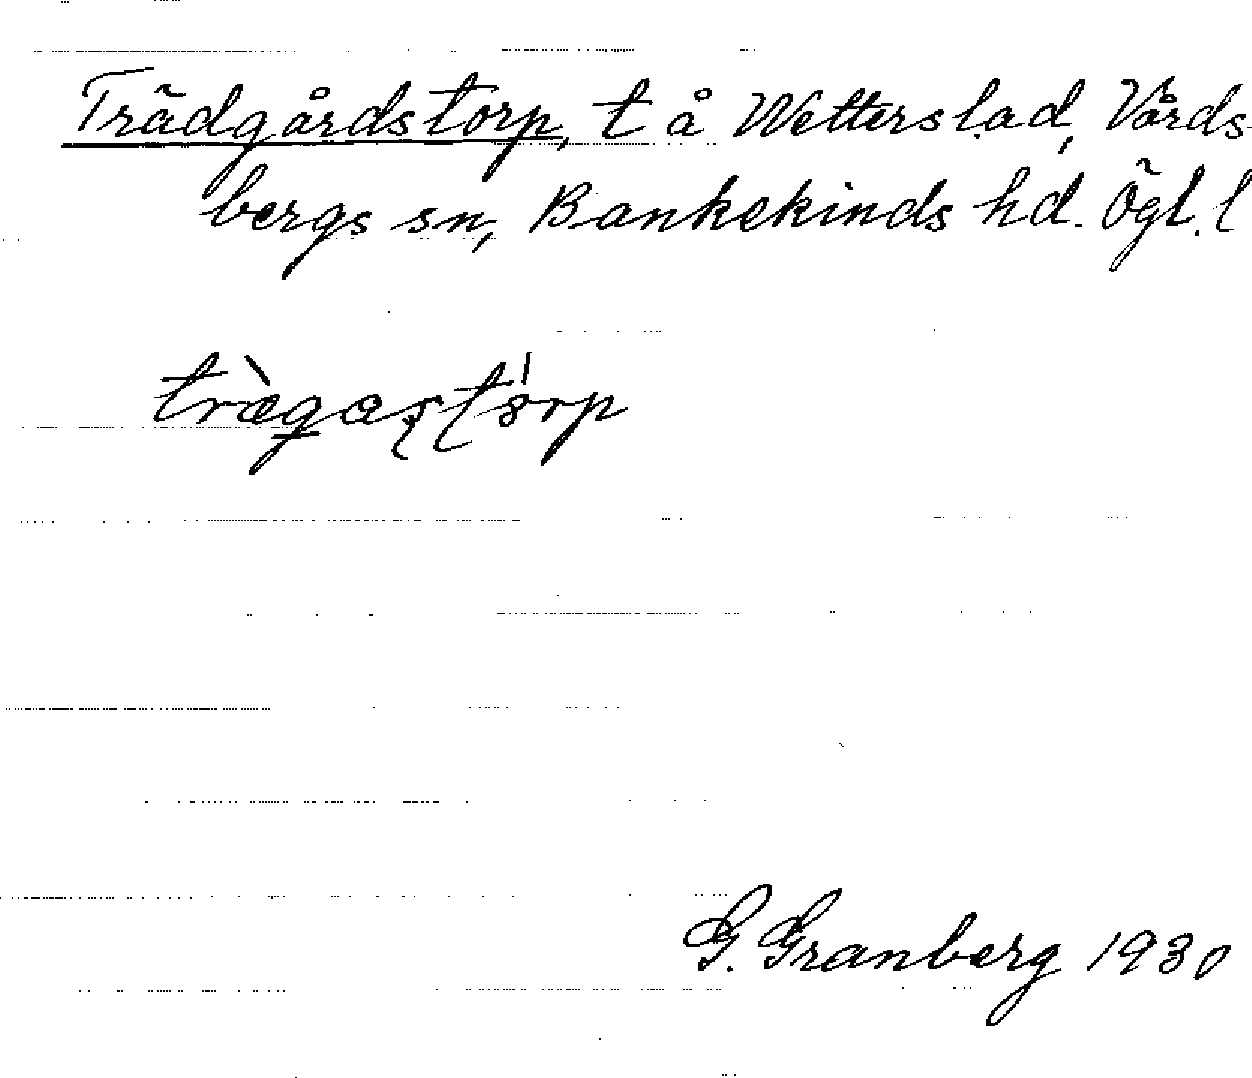 Trädgårdstorp, t å Wetterslad, Vårds-
bergs sn, Bankekinds hd. Ögl. l
G. Granberg 1930